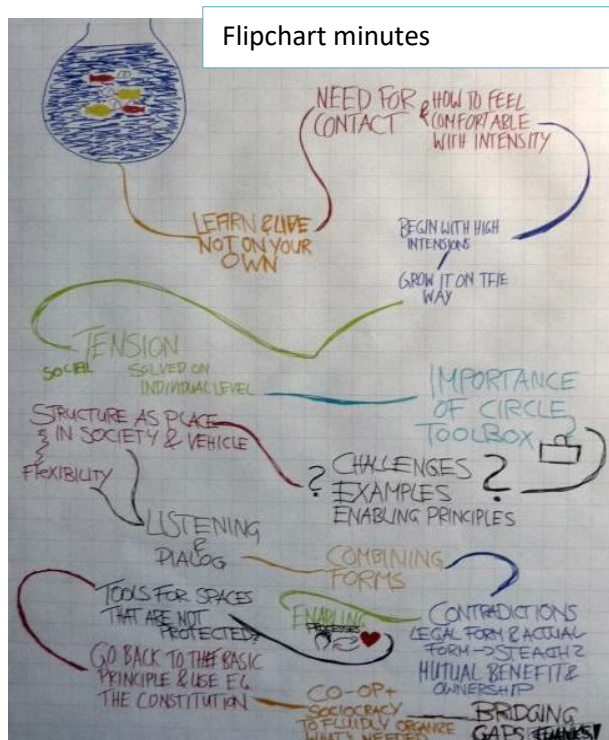 Flipchart minutes
NEED FOR
CONTACT
& HOW TO FEEL
COMFORTABLE
WITH INTENSITY
LEARN & LIVE
NOT ON YOUR
OWN
BEGIN WITH HIGH
INTENSIONS
GROW IT ON THE
WAY
TENSION
SOCIAL
SOLVED ON
INDIVIDUAL LEVEL
IMPORTANCE
OF CIRCLE
TOOLBOX
STRUCTURE AS PLACE
IN SOCIETY & VEHICLE
FLEXIBILITY
? CHALLENGES ?
EXAMPLES
ENABLING PRINCIPLES
LISTENING
&
DIALOG
COMBINING
FORMS
TOOLS FOR SPACES
THAT ARE NOT
PROTECTED?
ENABLING
PROCESSES
CONTRADICTIONS
LEGAL FORM & ACTUAL
FORM →
MUTUAL BENEFIT &
OWNERSHIP
GO BACK TO THE BASIC
PRINCIPLE & USE EG
THE CONSTITUTION
CO-OP +
SOCIOCRACY
TO FLUIDLY ORGANIZE
WHAT'S NEEDED
BRIDGING
GAPS THANKS!